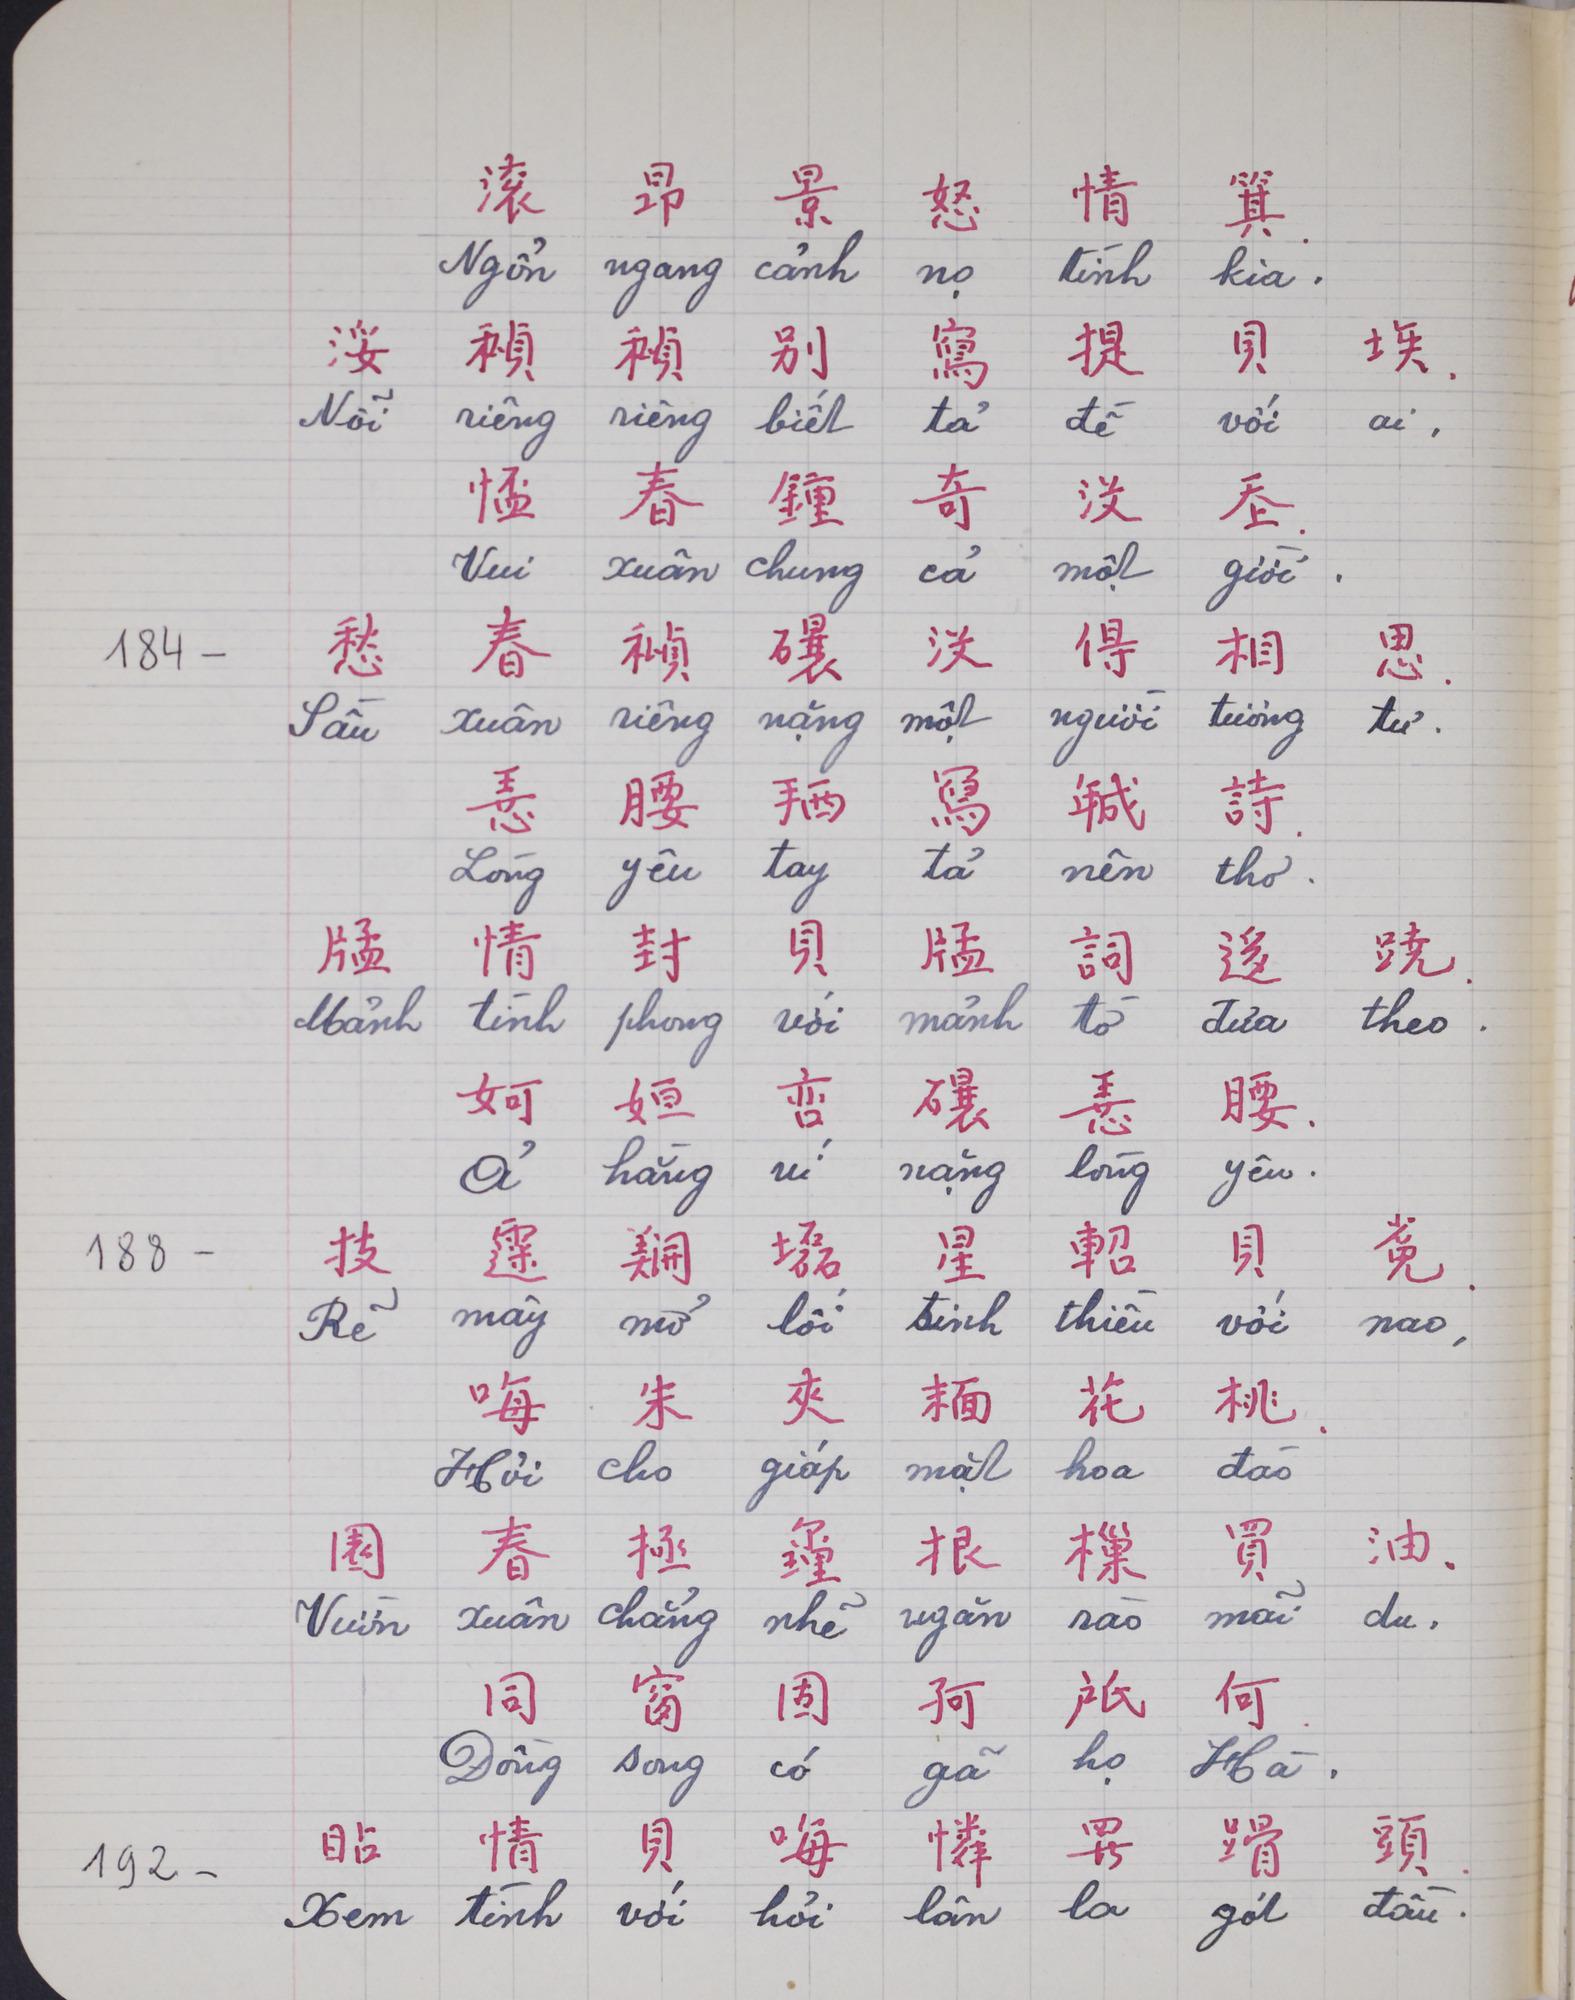 滚 昂 景 怒 情 箕.
Ngổn ngang cảnh nọ tình kia.
浽 𥛭 𥛭 别 寫 提 貝 埃.
Nỗi riêng riêng biết tả đề với ai,
𢝙 春 鐘 奇 沒 𡗶.
Vui xuân chung cả một giời.
184 - 愁 春 𥛭 𥗾 沒 𠊛 相 思.
Sầu xuân riêng nặng một người tương tư.
𢚸 腰 𢬣 寫 𢧚 詩.
Lòng yêu tay tả nên thơ.
𤗲 情 封 貝 𤗲 詞 迻 蹺.
Mảnh tình phong với mảnh tờ đưa theo.
妸 姮 𠶎 𥗾 𢚸 腰.
Ả hằng ví nặng lòng yêu.
188 - 技 𩄲 𢲫 𡓃 星 軺 貝 𱜢.
Rẽ mây mở lối tinh thiều với nao,
𠳨 朱 夾 𩈘 花 桃.
Hỏi cho giáp mặt hoa đào
園 春 拯 𨤰 垠 樔 買 油.
Vườn xuân chẳng nhẽ ngăn rào mãi du.
同 窗 固 哿 𢩜 何.
Đồng song có gã họ Hà.
192 - 䀡 情 貝 𠳨 憐 羅 𨃴 頭.
Xem tình với hỏi lân la gót đầu.